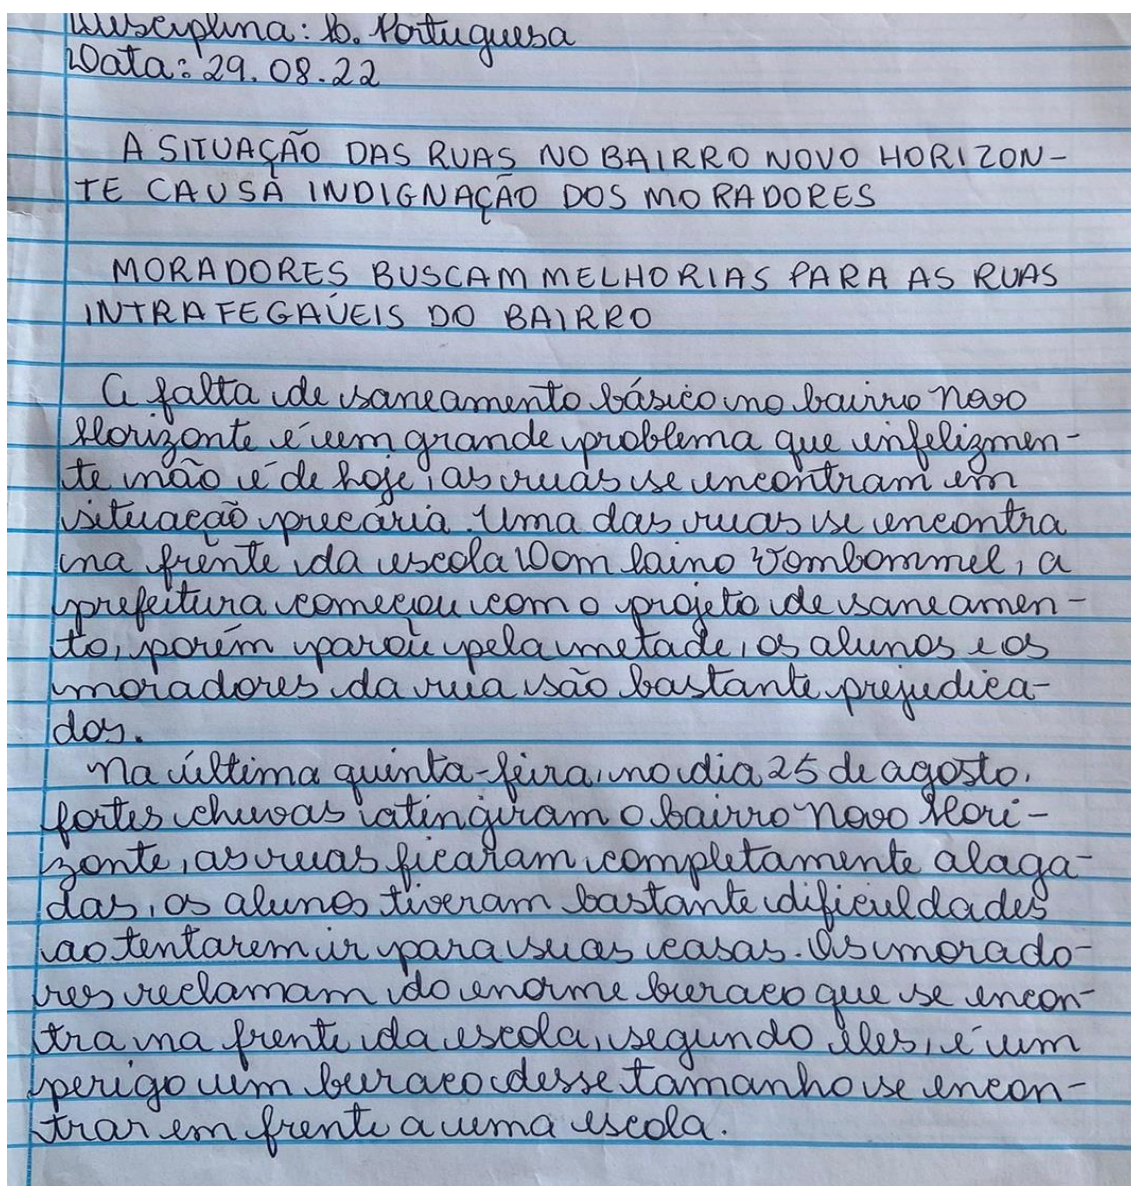 Disciplina: L. Portuguesa
Data: 29.08.22
A SITUAÇÃO DAS RUAS NO BAIRRO NOVO HORIZON-
TE CAUSA INDIGNAÇÃO DOS MORADORES
MORADORES BUSCAM MELHORIAS PARA AS RUAS
INTRAFEGAVÉIS DO BAIRRO
A falta de saneamento básico no bairro novo
Horizonte é um grande problema que infelizmen-
te não é de hoje, as ruas se encontram em
situação precária. Uma das ruas se encontra
na frente da escola Dom laino Vombommel, a
prefeitura começou com o projeto de saneamen-
to, porém parou pela metade, os alunos e os
moradores da rua são bastante prejudica-
dos.
Na última quinta-feira, no dia 25 de agosto,
fortes chuvas atingiram o bairro novo Hori-
zonte, as ruas ficaram completamente alaga-
das, os alunos tiveram bastante dificuldades
ao tentarem ir para suas casas. Os morado-
res reclamam do enorme buraco que se encon-
tra na frente da escola, segundo eles, é um
perigo um buraco desse tamanho se encon-
trar em frente a uma escola.